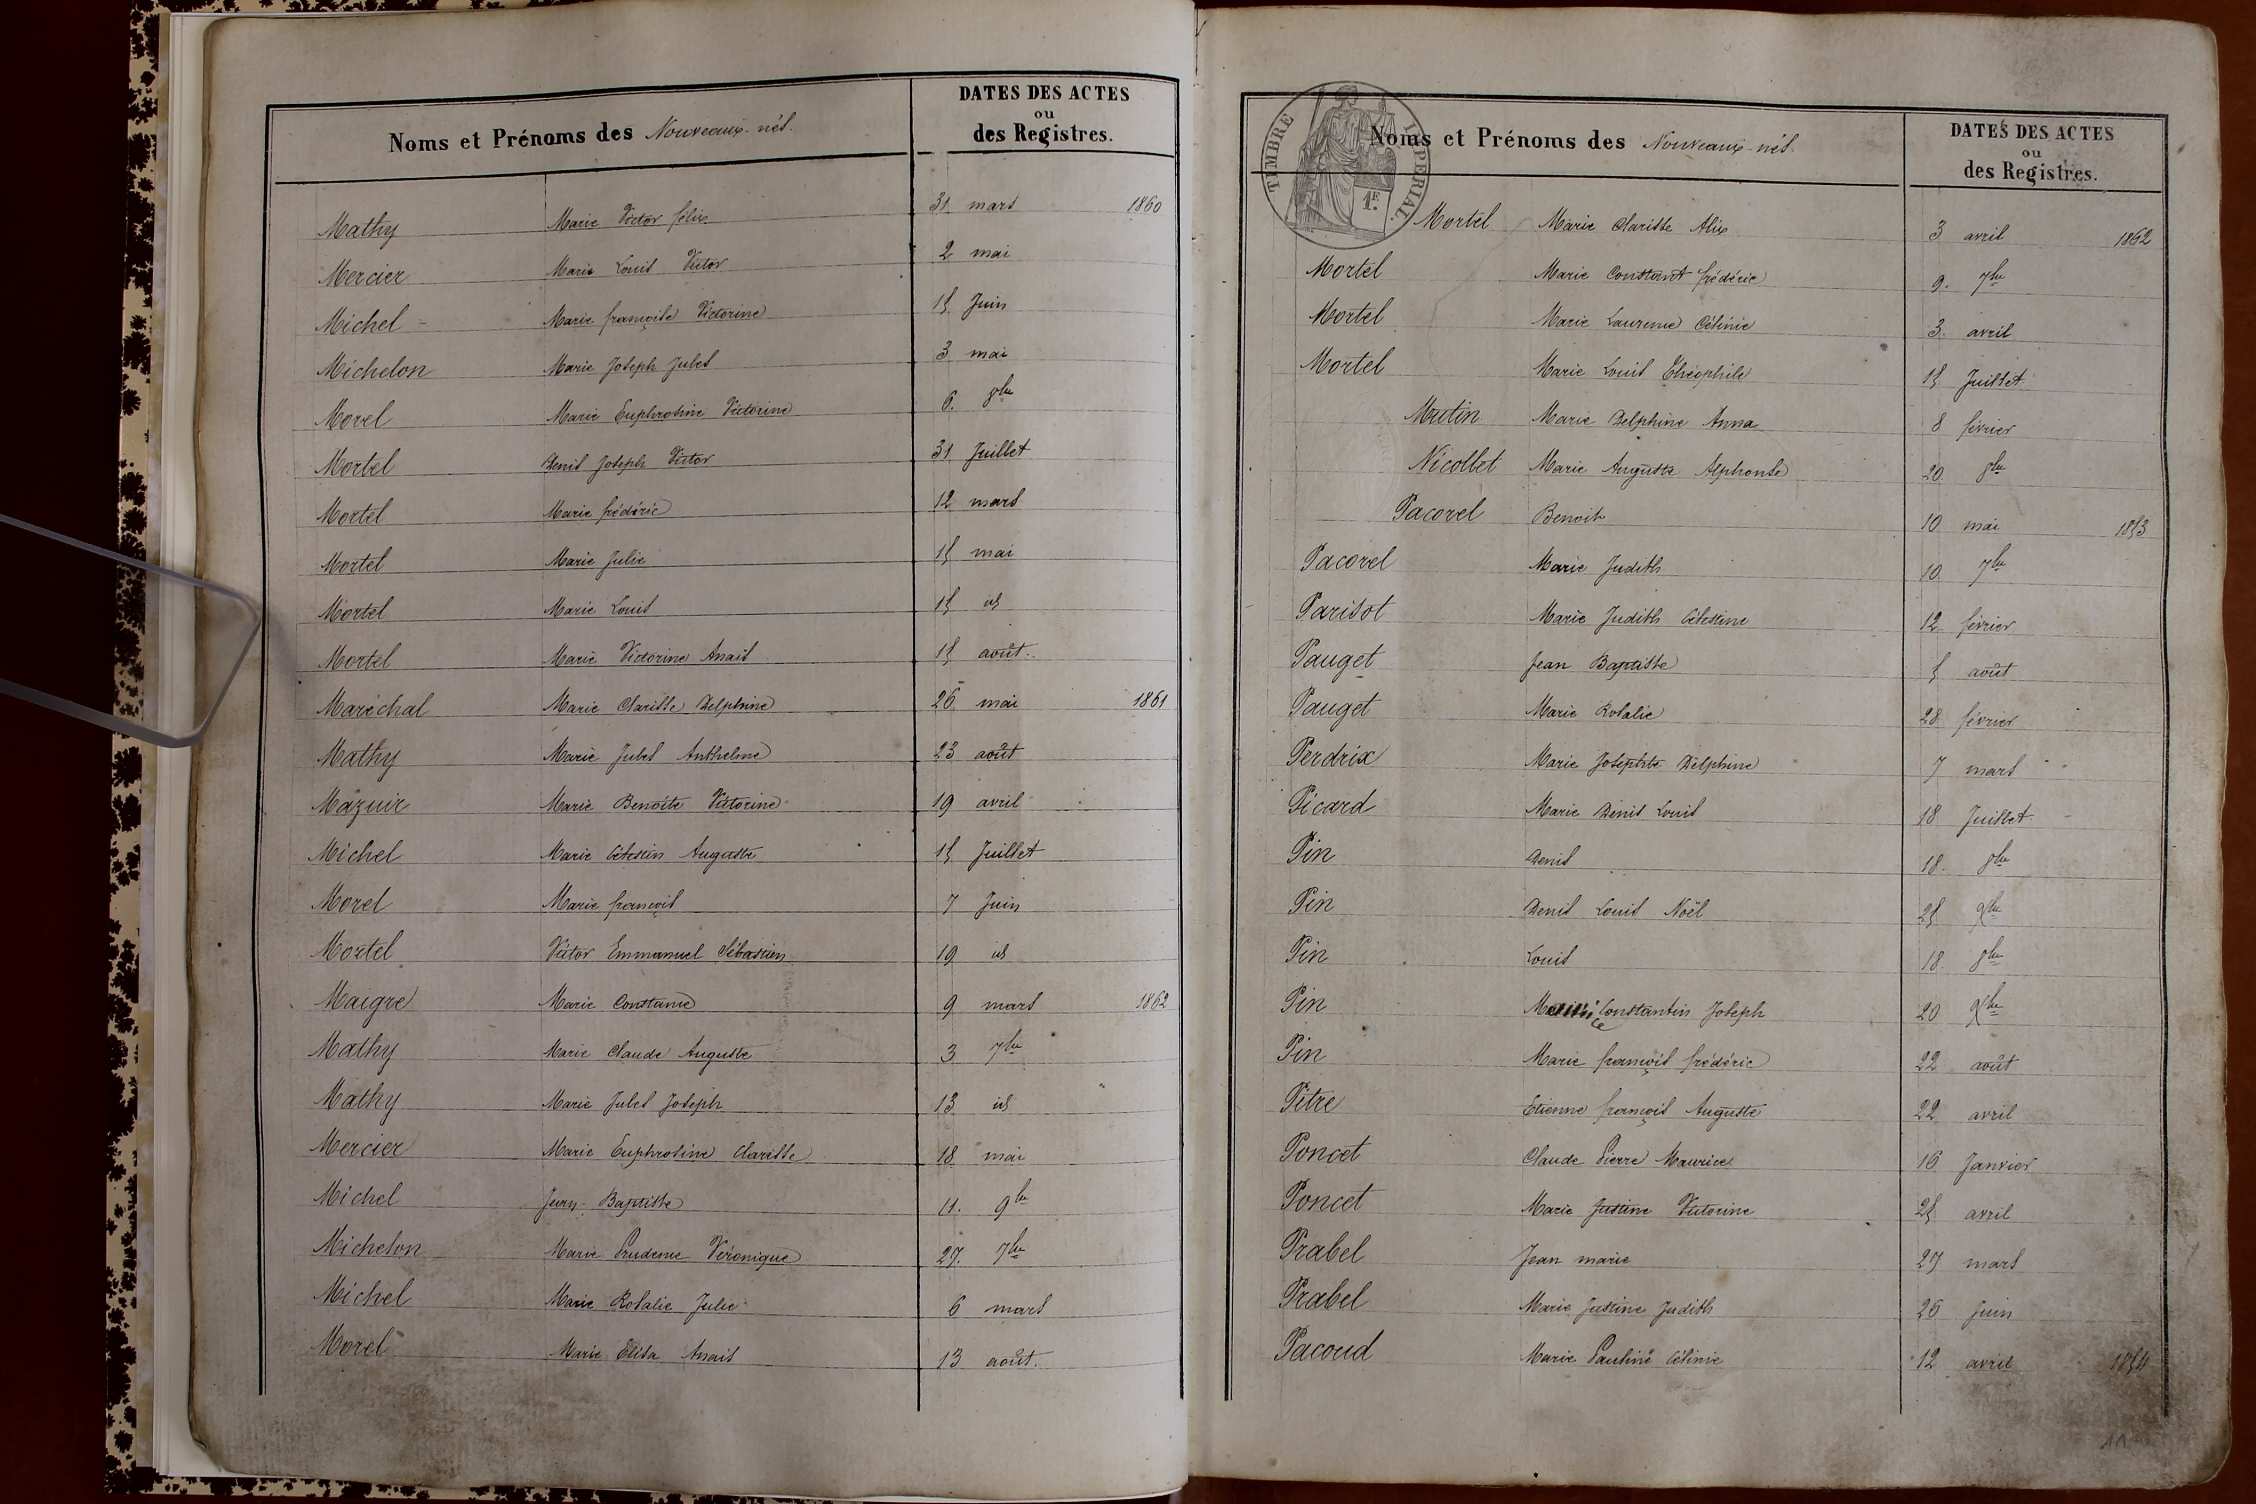 Noms et Prénoms des Nouveaux-nés.
DATES DES ACTES
ou
des Registres.
Mathy Marie Victor félix 31 mars 1860
Mercier Marie Louis Victor 2 mai
Michel Marie françoise Victorine 15 Juin
Michelon Marie Joseph Jules 3 mai
Morel Marie Euphrosine Victorine 6. 8bre
Mortel Denis Joseph Victor 31 Juillet
Mortel Marie frédéric 12 mars
Mortel Marie Julie 15 mai
Mortel Marie Louis 15 id
Mortel Marie Victorine Anaïs 15 août.
Maréchal Marie Clarisse Delphine 26 mai 1861
Mathy Marie Jules Anthelme 23 août
Mazuir Marie Benoite Victorine 19 avril
Michel Marie Célestin Auguste 15 Juillet
Morel Marie françois 7 Juin
Mortel Victor Emmanuel Sébastien 19 id
Maigre Marie Constance 9 mars 1862
Mathy Marie Claude Auguste 3 7bre
Mathy Marie Jules Joseph 13 id
Mercier Marie Euphrosine Clarisse 18 mai
Michel Jean-Baptiste 11. 9bre
Michelon Marie Prudence Véronique 27. 7bre
Michel Marie Rosalie Julie 6 mars
Morel Marie Elisa Anaïs 13 août.
TIMBRE IMPERIAL.
1F.
Noms et Prénoms des Nouveaux-nés
DATES DES ACTES
ou
des Registres.
Mortel Marie Clarisse Alix 3 avril 1862
Mortel Marie Constant frédéric 9. 7bre
Mortel Marie Laurence Célinie 3. avril
Mortel Marie Louis Théophile 15 Juillet
Mutin Marie Delphine Anna 8 février
Nicollet Marie Auguste Alphonse 20 8bre
Pacorel Benoit 10 mai 1853
Pacorel Marie Judith 10 7bre
Parisot Marie Judith Célestine 12 février
Pauget Jean Baptiste 5 août
Pauget Marie Rosalie 28 février
Perdrix Marie Josephte Delphine 7 mars
Picard Marie Denis Louis 18 Juillet
Pin Denis 18. 8bre
Pin Denis Louis Noël 25 Xbre
Pin Louis 18 8bre
Pin Constantin Joseph 20 Xbre
Pin Marie françois frédéric 22 août
Pitre Etienne françois Auguste 22 avril
Poncet Claude Pierre Maurice 16 Janvier
Poncet Marie Justine Victorine 25 avril
Prabel Jean marie 27 mars
Prabel Marie Justine Judith 26 Juin
Pacoud Marie Pauline Célinie 12 avril 1854
11